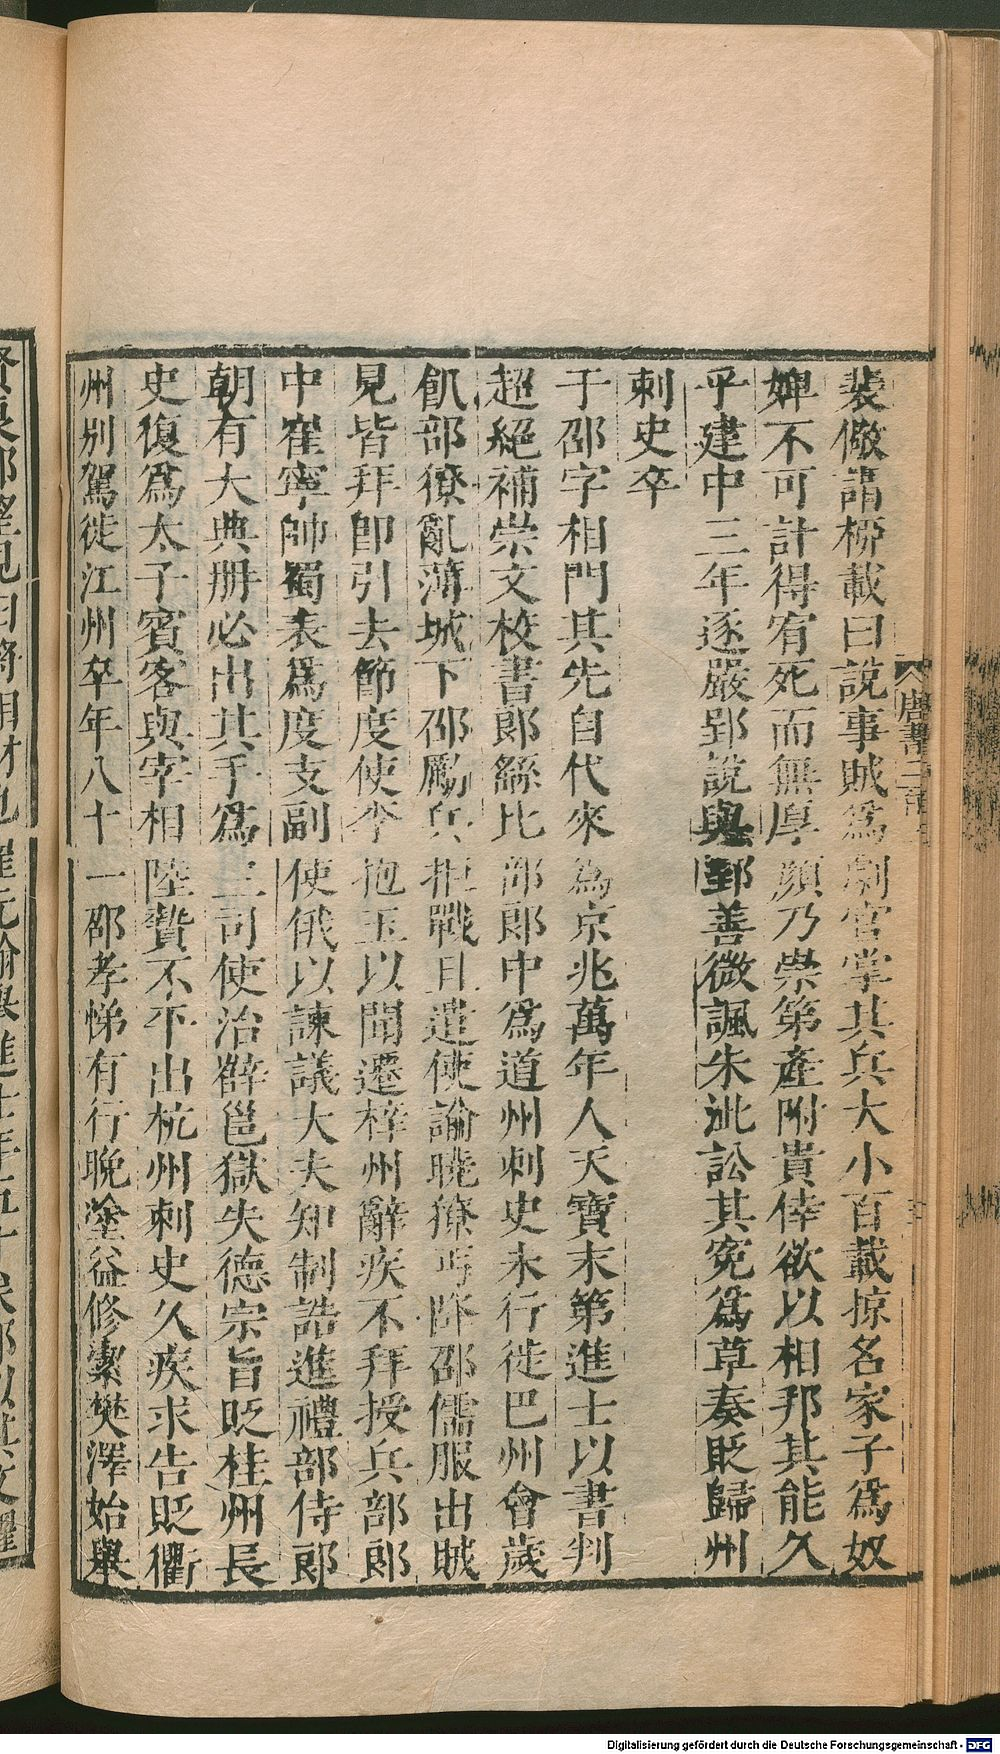 裴儆謂栁載曰說事賊爲劇官掌其兵大小百載掠名家子爲奴
婢不可計得宥死而無厚顏乃崇第產附貴倖欲以相邦其能久
乎建中三年逐嚴郢說與郢善微諷朱泚訟其寃爲草奏貶歸州
刺史卒
于邵字相門其先自代來爲京兆萬年人天寶末第進士以書判
超絕補崇文校書郞繇比部郞中爲道州刺史未行徙巴州會歲
飢部獠亂薄城下邵勵兵拒戰且遣使諭曉獠丐降邵儒服出賊
見皆拜卽引去節度使李抱玉以聞遷梓州辭疾不拜授兵部郞
中崔寧帥蜀表爲度支副使俄以諫議大夫知制誥進禮部侍郞
朝有大典册必出其手爲三司使治薛邕獄失德宗旨貶桂州長
史復爲太子賓客與宰相陸贄不平出杭州刺史久疾求告貶衢
州別駕徙江州卒年八十一邵孝悌有行晚塗益修絜樊澤始舉
唐書二百
賢良邵望見曰將相材也崔元翰舉進士年五十矣邵以其文擢
Digitalisierung gefördert durch die Deutsche Forschungsgemeinschaft - DFG